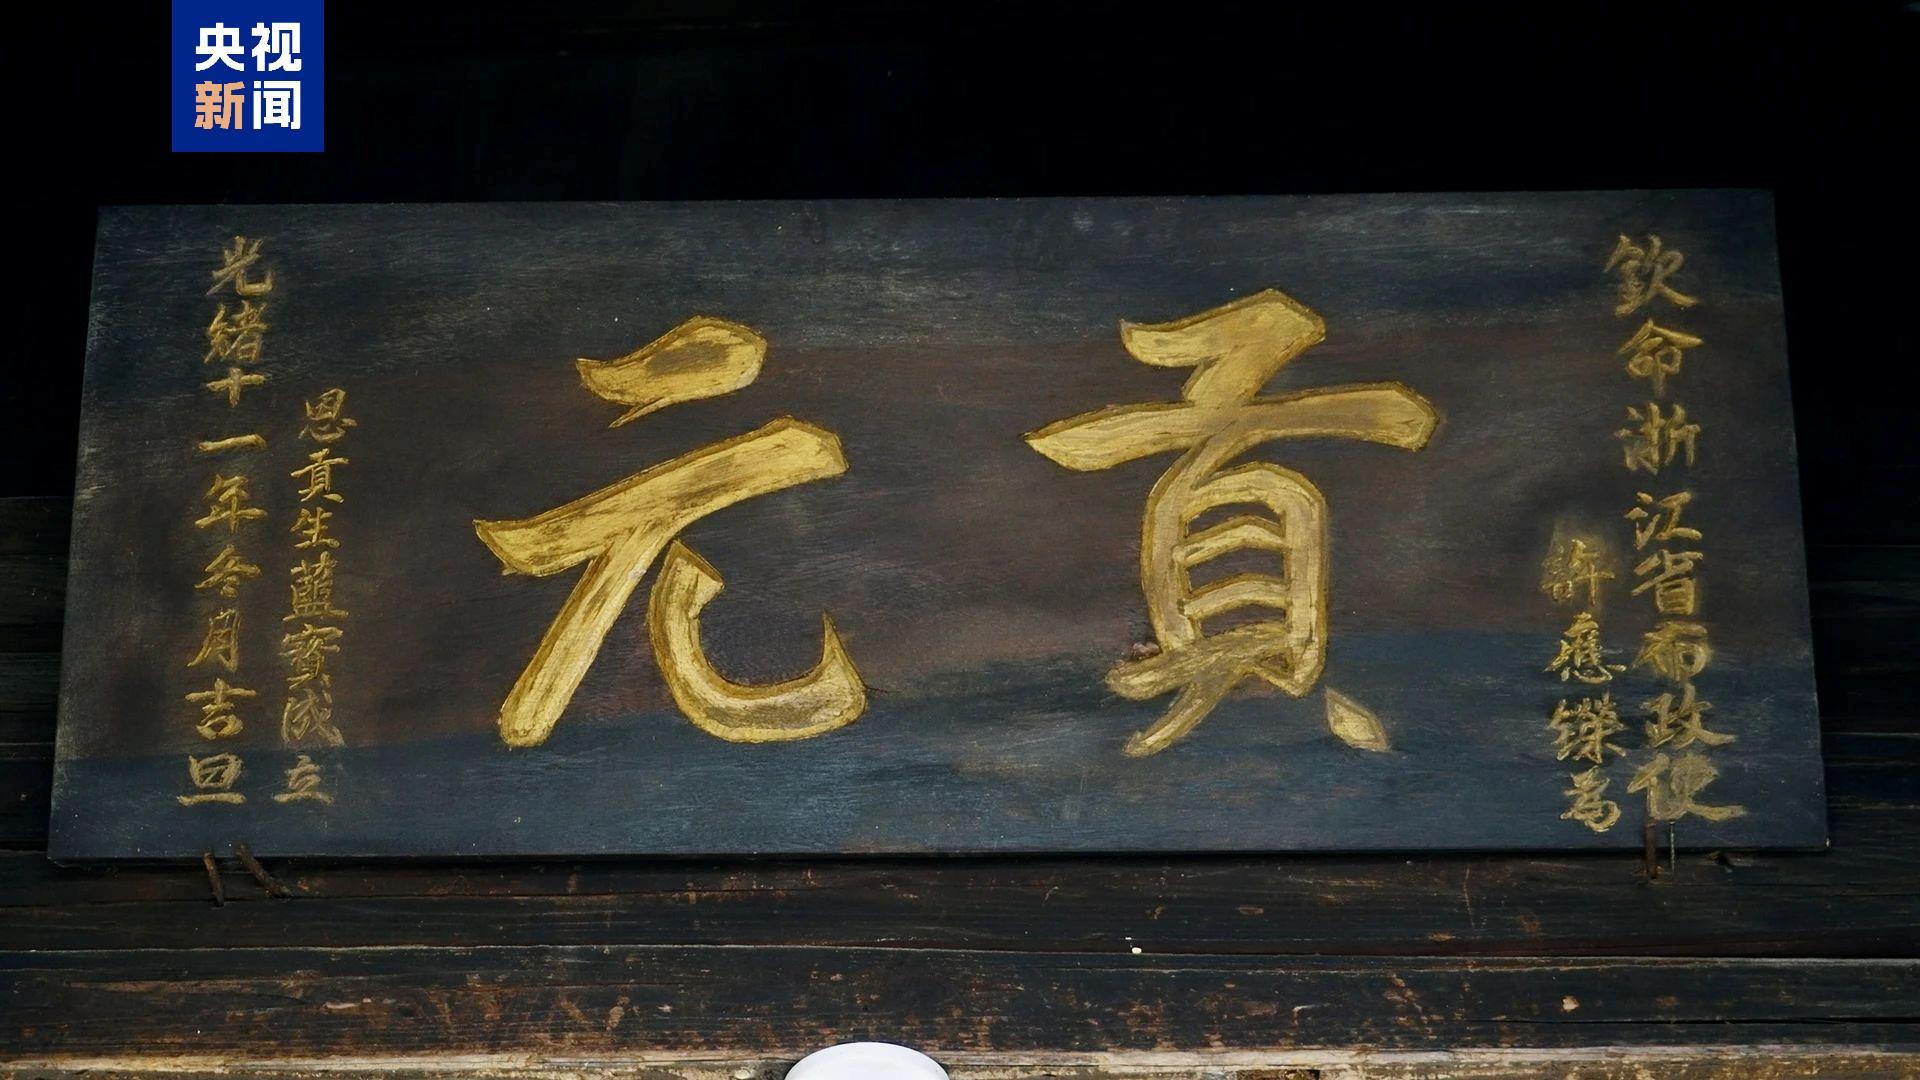 央视
新闻
欽命浙江省布政使
許應鑅為
貢元
恩貢生藍寶成立
光緒十一年冬月吉旦